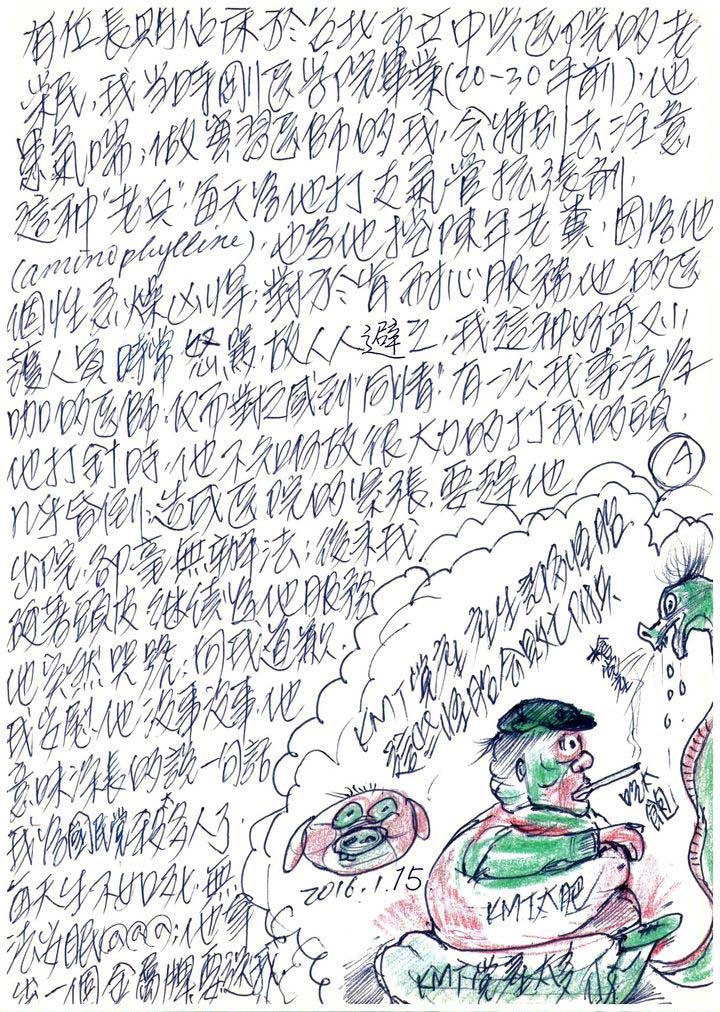 有位長期佔床於台北市立中興医院的老
榮民,我当時刚医学院畢業(20-30年前);他
患氣喘;做實習医師的我,会特別去注意
這種"老兵",每天給他打支氣管擴張劑,
(aminophylline),也為他挖陳年老糞,因為他
個性急燥凶悍;對於肯耐心服務他的医
護人員時常怒罵,故人人避之,我這种好奇又小
咖的医師,反而對之感到"同情",有一次我專注給
他打針時,他不知何故很大力的打我的頭,
几乎昏倒;造成医院的緊張,要趕他
出院,卻毫無辦法;後來我
硬著頭皮继续給他服務
他突然哭號;向我道歉,
我安慰他沒事沒事,他
意味深長的說一句話
我為國民党殺太多人了,
每天生不如死,無
法安眠@@@;他拿
出一個金属牌要送我,
A
KMT党產
吃太飽
2016.1.15.
KMT太肥
KMT党產太多